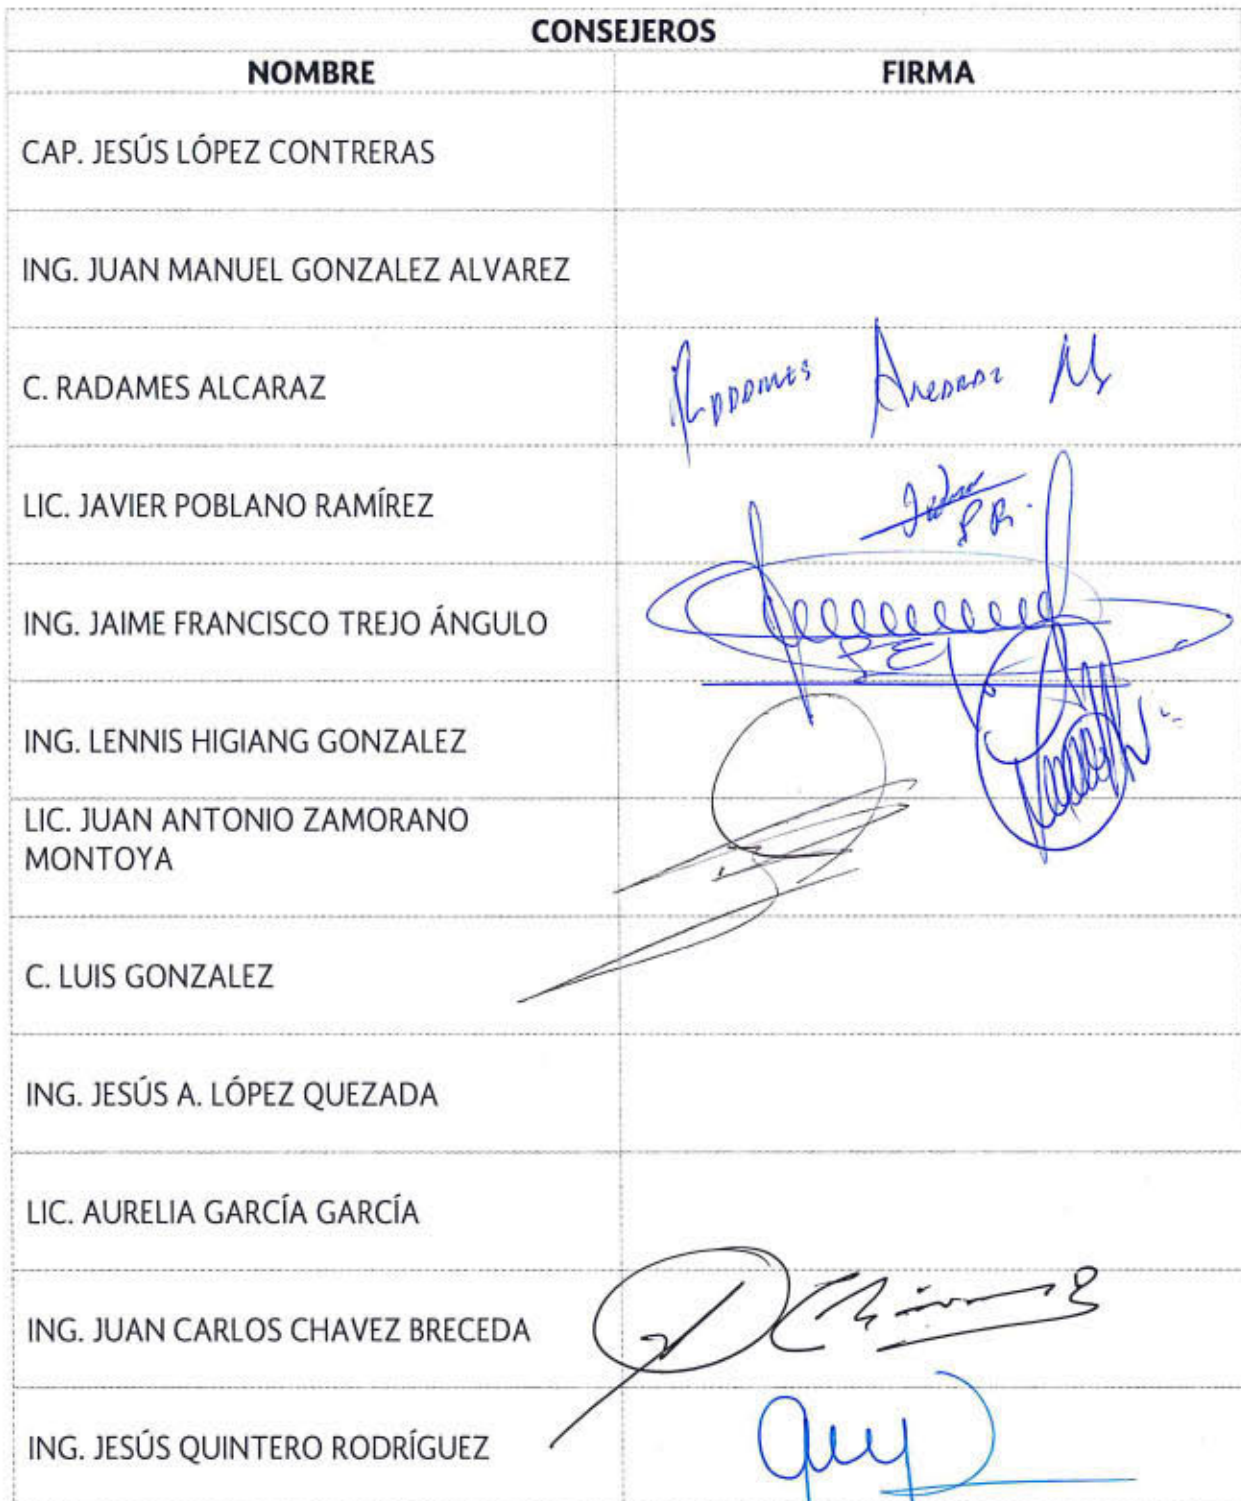 CONSEJEROS
NOMBRE FIRMA
CAP. JESÚS LÓPEZ CONTRERAS
ING. JUAN MANUEL GONZALEZ ALVAREZ
C. RADAMES ALCARAZ
LIC. JAVIER POBLANO RAMÍREZ
ING. JAIME FRANCISCO TREJO ÁNGULO
ING. LENNIS HIGIANG GONZALEZ
LIC. JUAN ANTONIO ZAMORANO
MONTOYA
C. LUIS GONZALEZ
ING. JESÚS A. LÓPEZ QUEZADA
LIC. AURELIA GARCÍA GARCÍA
ING. JUAN CARLOS CHAVEZ BRECEDA
ING. JESÚS QUINTERO RODRÍGUEZ